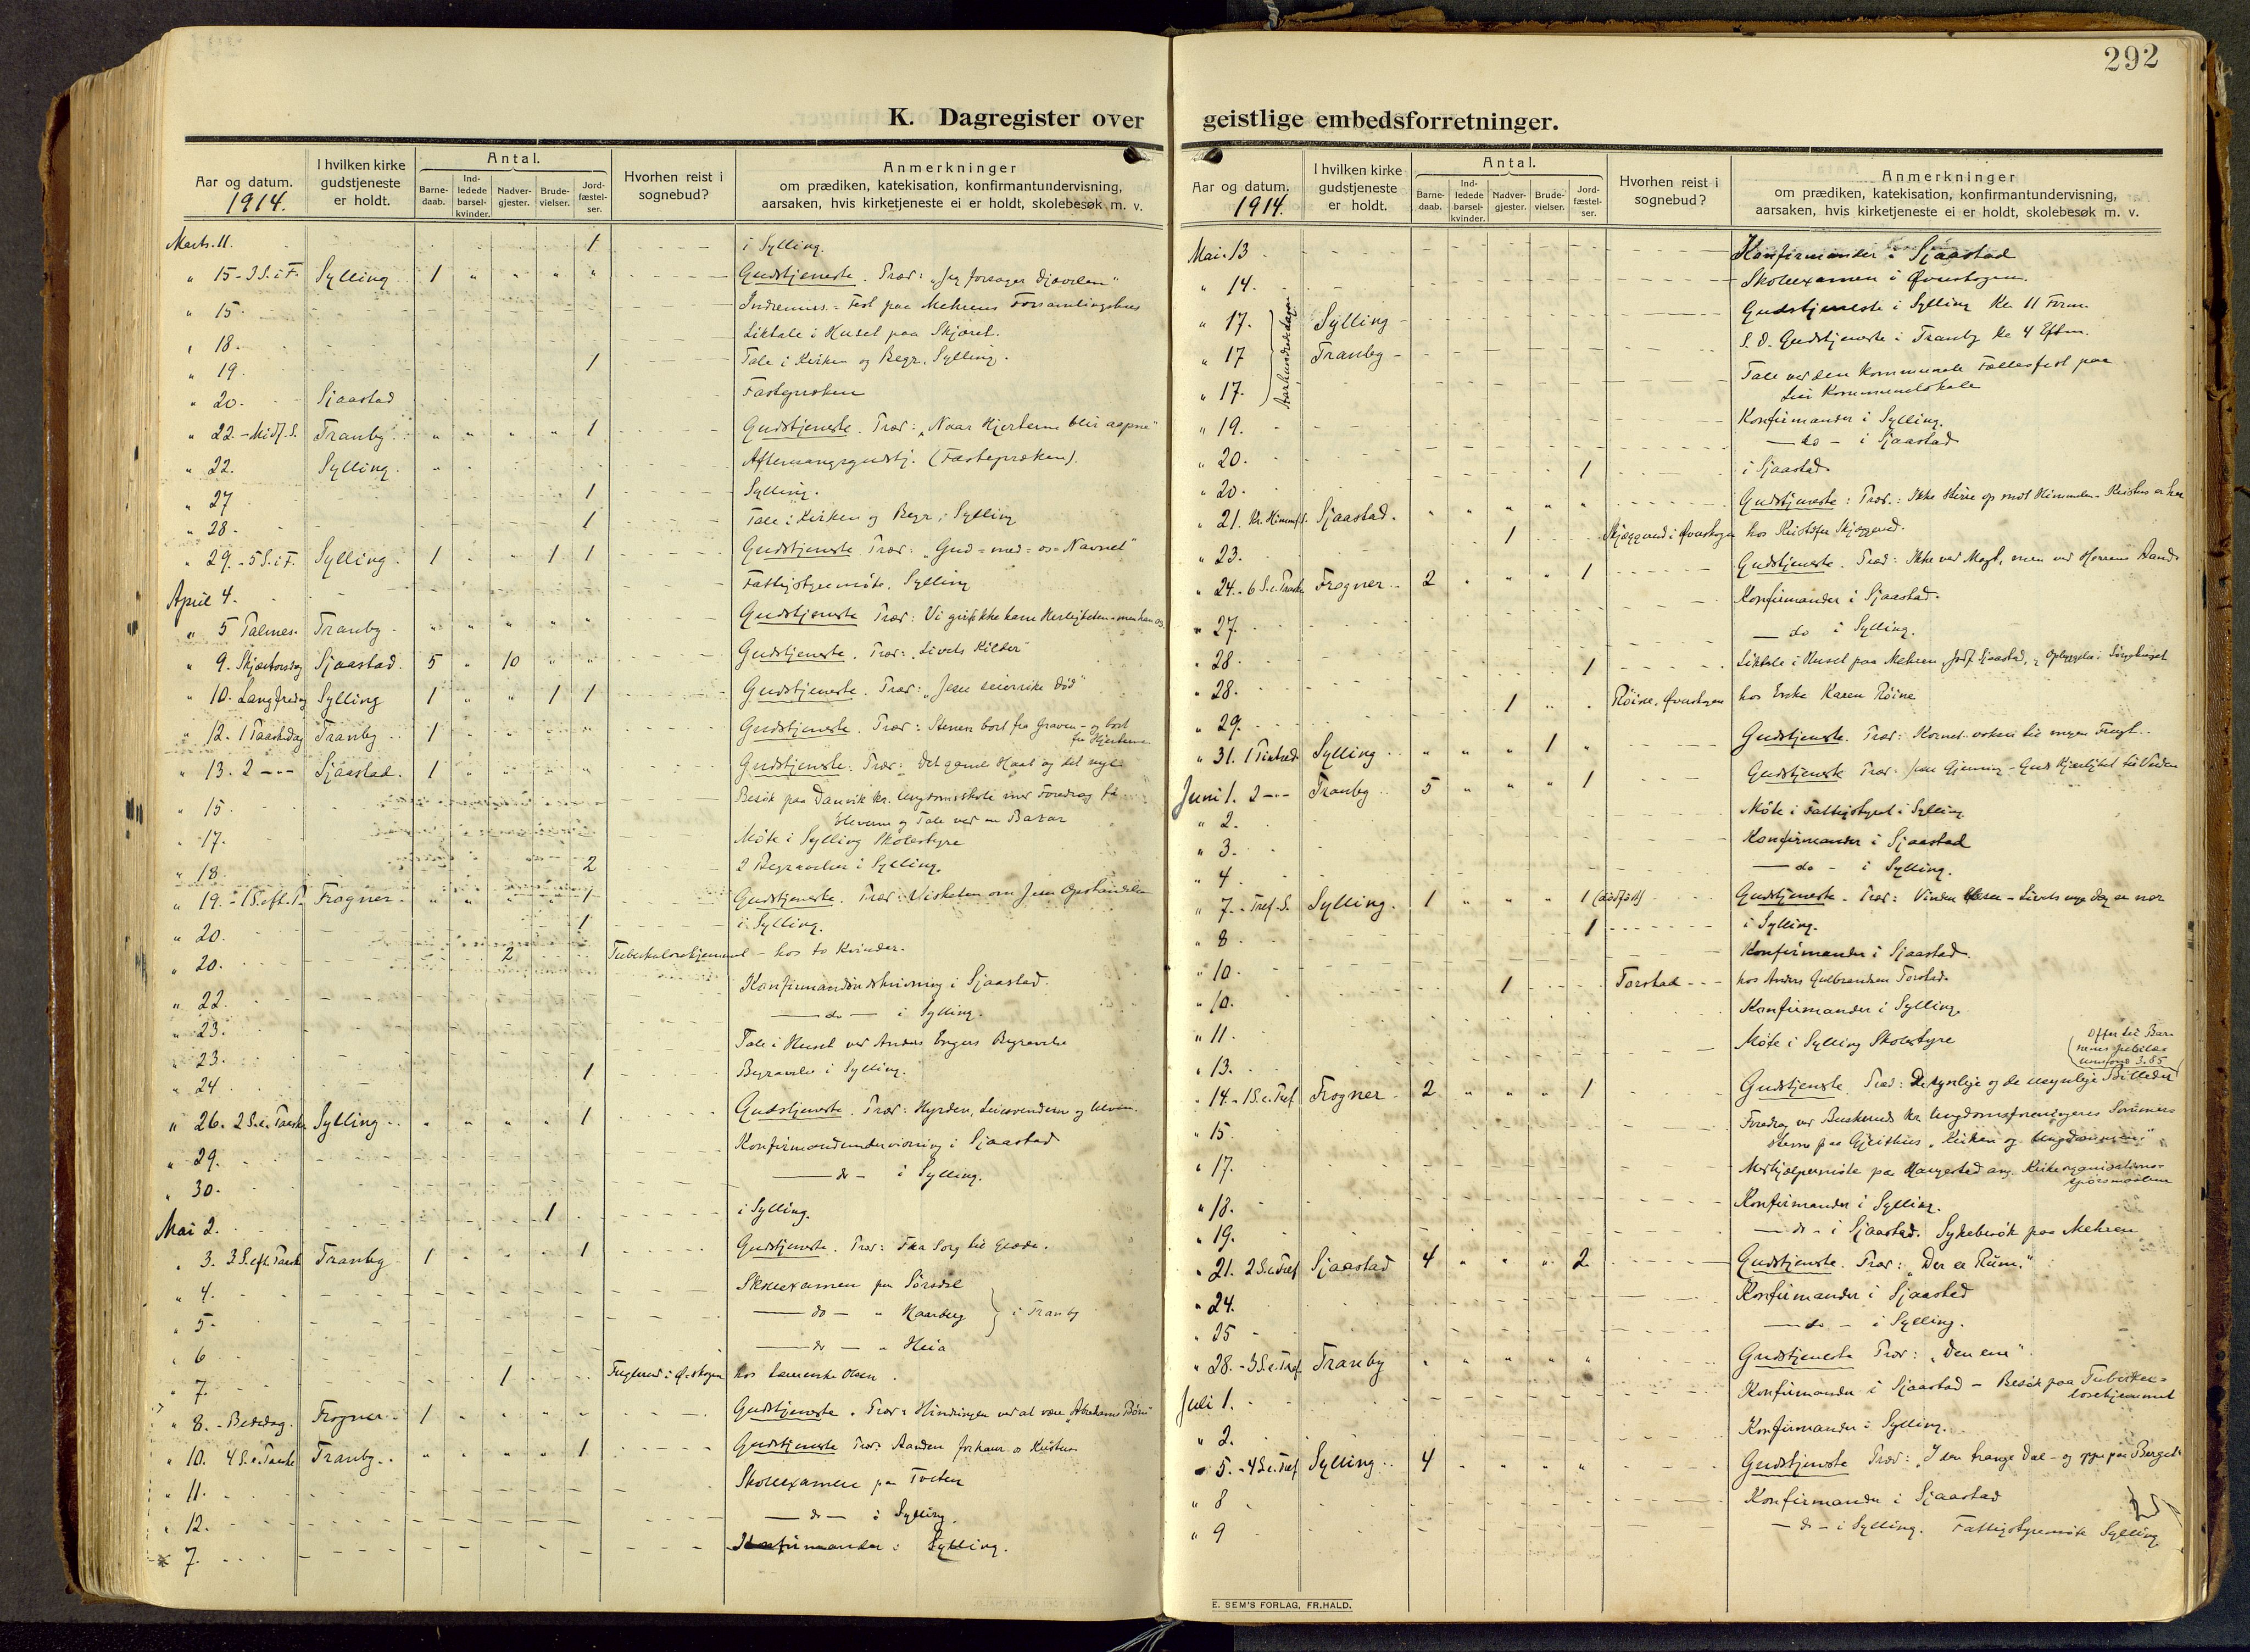 292
K. Dagregister over geistlige embedsforretninger.
Aar og datum.
1914.
I hvilken kirke gudstjeneste er holdt.
Antal.
Barne-daab.
Ind-ledede barsel-kvinder.
Nadver-gjester.
Brude-vielser.
Jord-fæstel-ser.
Hvorhen reist i sognebud?
Anmerkninger
om prædiken, katekisation, konfirmantundervisning,
aarsaken, hvis kirketjeneste ei er holdt, skolebesøk m. v.
Marts. 11. 1 i Sylling.
" 15 - 3 S. i F. Sylling 1 " " " " Gudstjeneste. Præd: "Jeg forsager Djævelen"
" 15. Indremiss. = Fest paa Mehrens Forsamlingshus
" 18. Liktale i Huset paa Skjæret.
" 19. 1 Tale i Kirken og Begr. Sylling.
" 20. Sjaastad Fastepræken
" 22. - Midf. S. Tranby " " " " 1 Gudstjeneste. Præd: "Naar Hjerterne blir aapne"
" 22. Sylling. Aftensangsgudstj. (Fastepræken).
" 27 1 Sylling.
" 28. 1 Tale i Kirken og Begr. i Sylling
" 29. - 5 S. i F. Sylling. 1 " " 1 1 Gudstjeneste Præd: "Gud = med = os = Navnet"
April 4. Fattigstyremøte, Sylling
" 5 Palmes. Tranby " " " " " Gudstjeneste Præd: Vi grip ikke ham Herligheten - men han os
" 9. Skjærtorsdag Sjaastad. 5 " 10 " " Gudstjeneste. Præd: "Livets Kilder"
" 10. Langfredag Sylling 1 " " 1 1 Gudstjeneste. Præd: "Jesu seierrike Død"
" 12. 1 Paaskedag Tranby 1 Gudstjeneste. Præd: Stenen bort fra Graven - og bort
fra Hjerterne
" 13. 2 - " - Sjaastad. 1 " " " " Gudstjeneste. Præd: "Det gamle Haab og det nye"
" 15. Besøk paa Danvik kr. Ungdomsskole med Foredrag for
Eleverne og Tale ved en Bazar
" 17. Møte i Sylling Skolestyre
" 18. 2 2 Begravelser i Sylling.
" 19. - 1 S. eft. P. Frogner 1 Gudstjeneste. Præd: Visheten om Jesu Opstandelse
" 20. 1 i Sylling.
" 20. 2 Tuberkulosehjemmet - hos to Kvinder.
" 22. Konfirmandindskrivning i Sjaastad.
" 23. - do - i Sylling.
" 23. Tale i Huset ved Anders Engers Begravelse
" 24 1 Begravelse i Sylling.
" 26. 2 S. e. Paaske Sylling " " " " 1 Gudstjeneste. Præd: Hyrden, Leiesvenden og Ulven.
" 29. Konfirmandundervisning i Sjaastad
" 30. - do - i Sylling.
Mai 2. 1 i Sylling.
" 3. 3 S. eft. Paaske Tranby 1 " " " 1 Gudstjeneste. Præd: Fra Sorg til Glæde.
" 4. Skoleexamen paa Sørsdal
" 5. - do - " Haarberg } i Tranby
" 6 - do - " Heia
" 7. 1 Fuglerud i Ø.skogen hos Olsen.
" 8. - Bededag. Frogner 1 Gudstjeneste. Præd: Hindringen ved at være "Abrahams Børn"
" 10. 4 S. e. Paaske Tranby 1 Gudstjeneste Præd: Aanden forklarer os Kristus.
" 11. Skoleexamen paa Tveten
" 12. - do - i Sylling.
" 7. Konfirmander i Sylling.
Aar og datum.
1914.
I hvilken kirke gudstjeneste er holdt.
Antal.
Barne-daab.
Ind-ledede barsel-kvinder.
Nadver-gjester.
Brude-vielser.
Jord-fæstel-ser.
Hvorhen reist i sognebud?
Anmerkninger
om prædiken, katekisation, konfirmantundervisning,
aarsaken, hvis kirketjeneste ei er holdt, skolebesøk m. v.
Mai. 13 Konfirmander i Sjaastad
" 14. Skoleexamen i Øverskogen.
" 17. Aarhundredsdagen Sylling Gudstjeneste i Sylling Kl. 11 Form.
" 17 Tranby S. D. Gudstjeneste i Tranby Kl 4 Eftm.
" 17. Tale ved den kommunale Fællesfest paa
Lier Kommunelokale
" 19. Konfirmander i Sylling.
" 20. - do - i Sjaastad
" 20. 1 i Sjaastad.
" 21. Kr. Himmelf. Sjaastad. " " " " " Gudstjeneste: Præd.: Ikke stirre op mot Himmelen - Kristus er her
" 23. 1 Skjæggerud i Øverskogen hos Kristoffer Skjæggerud.
" 24. - 6 S. e. Paaske Frogner 2 " " " 1 Gudstjeneste. Præd: Ikke ved Magt, men ved Herrens Aand
" 27. Konfirmander i Sjaastad.
" 28. - do i Sylling.
" 28. 1 Liktale i Huset paa Mehren, Jordf. Sjaastad, og Opbyggelse i Sørgehuset
" 29. 1 Røine, Øverskogen hos Enke Karen Røine
" 31. 1 Pintsed. Sylling " " " 1 " Gudstjeneste. Præd: Kornet vokser til megen Frugt.
Juni 1. 2 - " - Tranby 5 " " " 1 Gudstjeneste Præd: Guds Kjærlighet til Verden
" 2. Møte i Fattigstyret i Sylling
" 3. Konfirmander i Sjaastad
" 4. - do - i Sylling.
" 7. - Tref. S. Sylling. 1 " " " 1 (dødfødt) Gudstjeneste - Præd: Vinden blæser - Livets nye Dag er nær
" 8 1 i Sylling.
" 10. Konfirmander i Sjaastad.
" 10. 1 Torstad hos Anders Gulbrandsen Torstad.
" 11. Konfirmander i Sylling.
" 13. Møte i Sylling Skolestyre
(Offer til Bar-
nenes Jubilæ-
umsfond 3.85)
" 14. - 1 S. e. Tref Frogner 2 " " " 1 Gudstjeneste. Præd: De synlige og de usynlige Billeder
" 15. Foredrag ved Buskeruds kr. Ungdomsforeningers Sommer-
stevne paa Gjeithus "Kirken og Ungdommen."
" 17. Medhjælpermøte paa Haugestad ang. Kirkeorganisations-
spørsmaalene
" 18. Konfirmander i Sylling.
" 19. - do - i Sjaastad. Sykebesøk paa Mehren
" 21. 2 S. e. Tref Sjaastad 4 " " " 2 Gudstjeneste. Præd: "Der er Rum."
" 24. Konfirmander i Sjaastad
" 25 - do - i Sylling.
" 28. - 3 S. e. Tref. Tranby " " " " " Gudstjeneste Præd: "Den ene".
Juli 1. Konfirmander i Sjaastad - Besøk paa Tuberku-
losehjemmet
" 2. Konfirmander i Sylling.
" 5. - 4 S. e. Tref Sylling 4 " " " " Gudstjeneste Præd: "I den trange Dal - og oppe paa Berget"
" 8 Konfirmander i Sjaastad
" 9 - do - i Sylling. Fattigstyremøte Sylling
E. SEM'S FORLAG, FR.HALD.